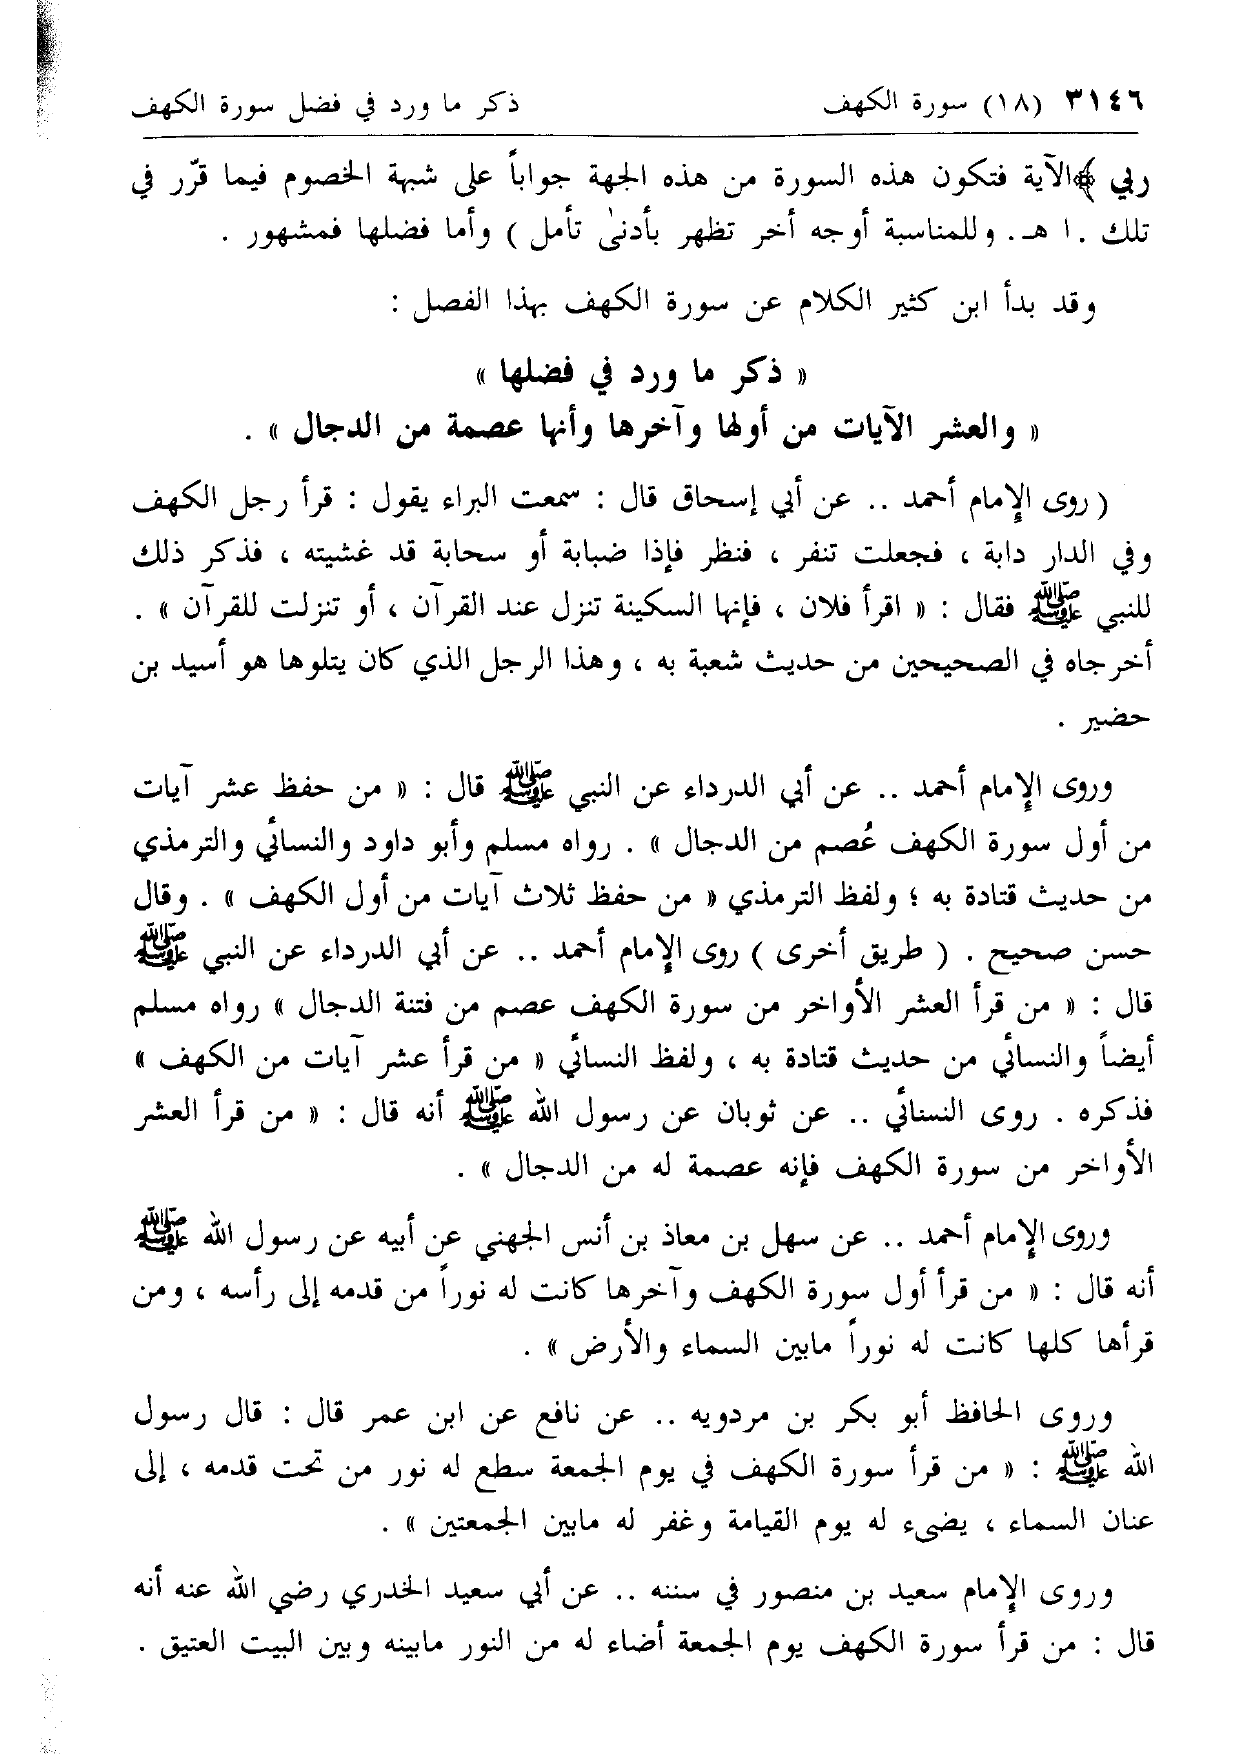 ٣١٤٦ (١٨) سورة الكهف ذكر ما ورد في فضل سورة الكهف
ربي ﴾ الآية فتكون هذه السورة من هذه الجهة جواباً على شبهة الخصوم فيما قرّر في
تلك . ا هـ . وللمناسبة أوجه أخر تظهر بأدنىٰ تأمل ) وأما فضلها فمشهور .
وقد بدأ ابن كثير الكلام عن سورة الكهف بهذا الفصل :
« ذكر ما ورد في فضلها »
« والعشر الآيات من أولها وآخرها وأنها عصمة من الدجال » .
( روى الإمام أحمد .. عن أبي إسحاق قال : سمعت البراء يقول : قرأ رجل الكهف
وفي الدار دابة ، فجعلت تنفر ، فنظر فإذا ضبابة أو سحابة قد غشيته ، فذكر ذلك
للنبي ﷺ فقال : « اقرأ فلان ، فإنها السكينة تنزل عند القرآن ، أو تنزلت للقرآن » .
أخرجاه في الصحيحين من حديث شعبة به ، وهذا الرجل الذي كان يتلوها هو أسيد بن
حضير .
وروى الإمام أحمد .. عن أبي الدرداء عن النبي ﷺ قال : « من حفظ عشر آيات
من أول سورة الكهف عُصم من الدجال » . رواه مسلم وأبو داود والنسائي والترمذي
من حديث قتادة به ؛ ولفظ الترمذي « من حفظ ثلاث آيات من أول الكهف » . وقال
حسن صحيح . ( طريق أخرى ) روى الإمام أحمد .. عن أبي الدرداء عن النبي ﷺ
قال : « من قرأ العشر الأواخر من سورة الكهف عصم من فتنة الدجال » رواه مسلم
أيضاً والنسائي من حديث قتادة به ، ولفظ النسائي « من قرأ عشر آيات من الكهف »
فذكره . روى النسائي .. عن ثوبان عن رسول الله ﷺ أنه قال : « من قرأ العشر
الأواخر من سورة الكهف فإنه عصمة له من الدجال » .
وروى الإمام أحمد .. عن سهل بن معاذ بن أنس الجهني عن أبيه عن رسول الله ﷺ
أنه قال : « من قرأ أول سورة الكهف وآخرها كانت له نوراً من قدمه إلى رأسه ، ومن
قرأها كلها كانت له نوراً مابين السماء والأرض » .
وروى الحافظ أبو بكر بن مردويه .. عن نافع عن ابن عمر قال : قال رسول
الله ﷺ : « من قرأ سورة الكهف في يوم الجمعة سطع له نور من تحت قدمه ، إلى
عنان السماء ، يضيء له يوم القيامة وغفر له مابين الجمعتين » .
وروى الإمام سعيد بن منصور في سننه .. عن أبي سعيد الخدري رضي الله عنه أنه
قال : من قرأ سورة الكهف يوم الجمعة أضاء له من النور مابينه وبين البيت العتيق .